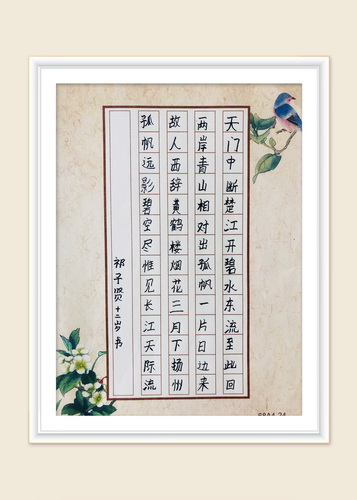 天门中断楚江开碧水东流至此回
两岸青山相对出孤帆一片日边来
故人西辞黄鹤楼烟花三月下扬州
孤帆远影碧空尽惟见长江天际流
祁子贤十二岁书